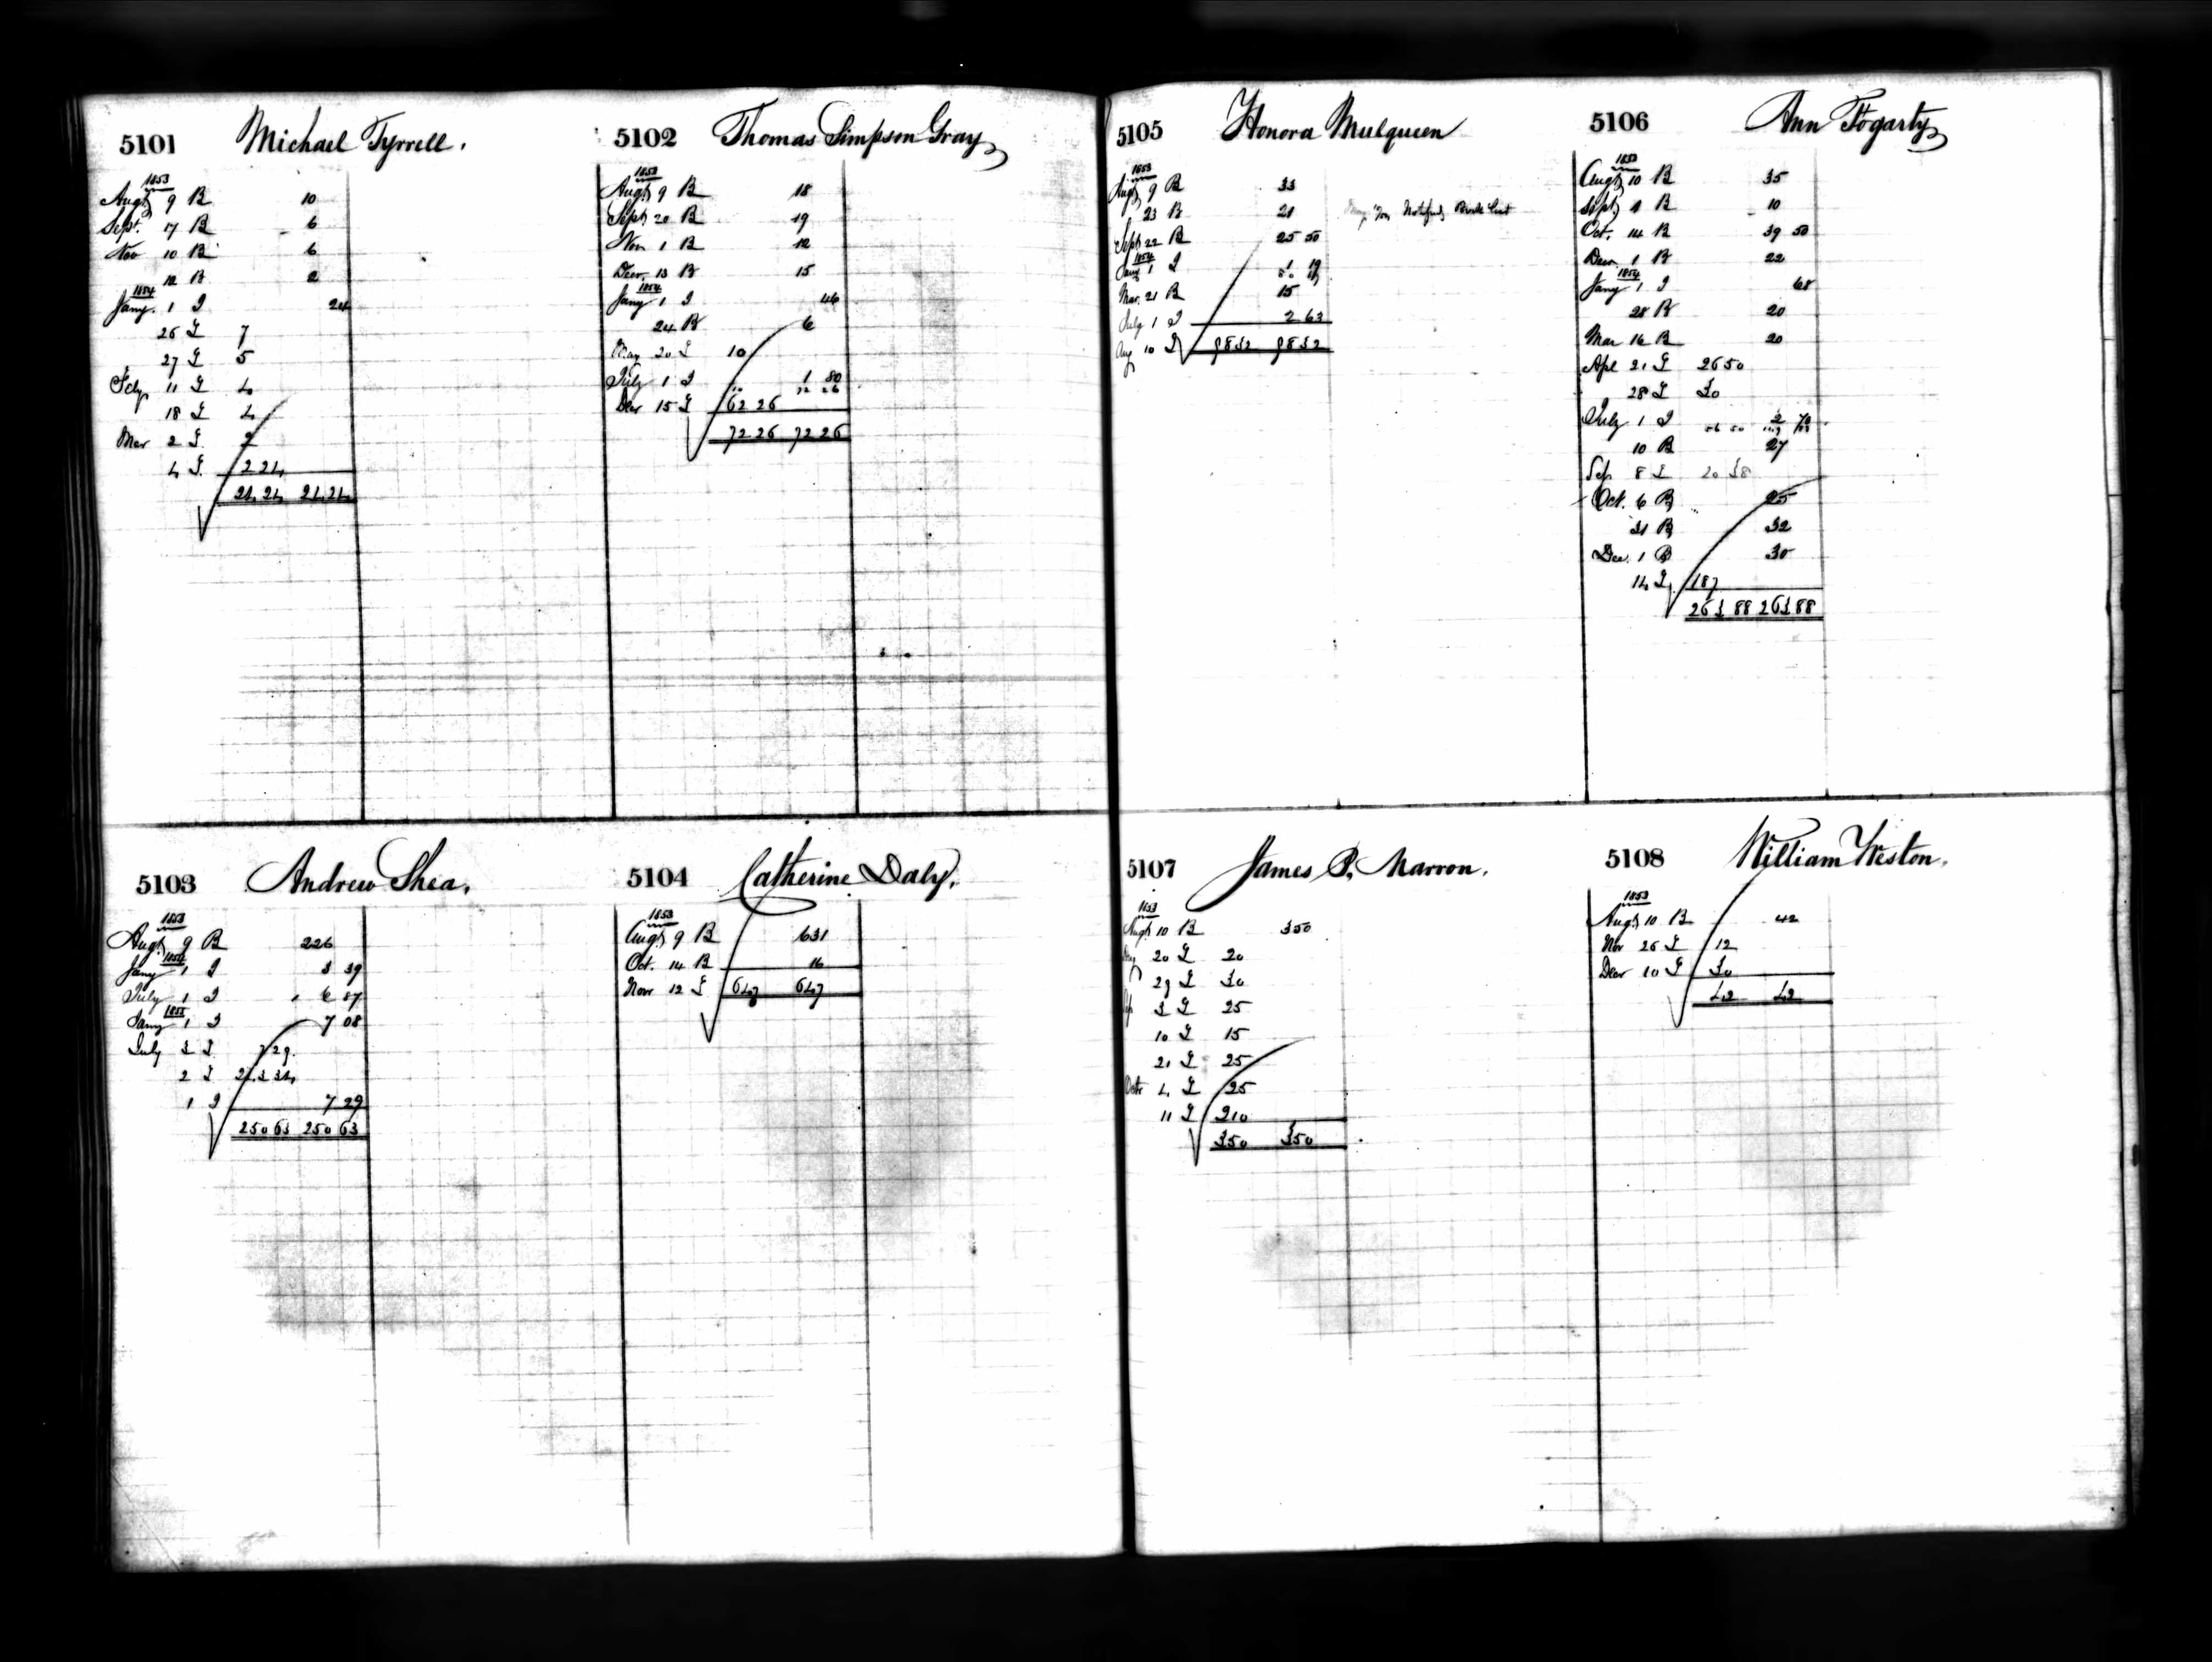 5101 Michael Tyrrell.
1853
Augt 9 B 10
Sept. 17 B 6
Nov 10 B 6
12 B 2
1854
Jany. 1 I 24
26 L 7
27 L 5
Feby 11 L 4
18 L 4
Mar 2 L 2
4 L 2 24
24 24 24 24
5102 Thomas Simpson Gray
1853
Augt 9 B 18
Sept 20 B 19
Nov 1 B 12
Decr 13 B 15
1854
Jany 1 I 46
24 B 6
May 20 L 10
July 1 I 1 80
Decr 15 L 62 26
72 26 72 26
5103 Andrew Shea.
1853
Augt 9 B 226
1854
Jany 1 I 3 39
July 1 I 6 87
1855
Jany 1 I 7 08
July 2 L 7 29
2 L 243 34
1 I 7 29
250 63 250 63
5104 Catherine Daly.
1853
Augt 9 B 631
Oct. 14 B 16
Novr 12 L 647 647
5105 Honora Mulqueen
1853
Augt 9 B 33
23 B 21 Notified Book Lost
Sept 22 B 25 50
1854
Jany 1 I 1 19
Mar. 21 B 15
July 1 I 2 63
Aug 10 L 98 32 98 32
5106 Ann Fogarty
1853
Augt 10 B 35
Sept 1 B 10
Oct. 14 B 39 50
Decr 1 B 22
1854
Jany 1 I 68
28 B 20
Mar 16 B 20
Apl 21 L 26 50
28 L 30
July 1 I 2 70
10 B 27
Sep 8 L 20 38
Oct. 6 B 25
31 B 32
Dec. 1 B 30
14 L 187
263 88 263 88
5107 James P. Marron.
1853
Augt 10 B 350
20 L 20
29 L 30
Sep 3 L 25
10 L 15
21 L 25
Octr 4 L 25
11 L 210
350 350
5108 William Weston.
1853
Augt 10 B 42
Nov 26 L 12
Decr 10 L 30
42 42